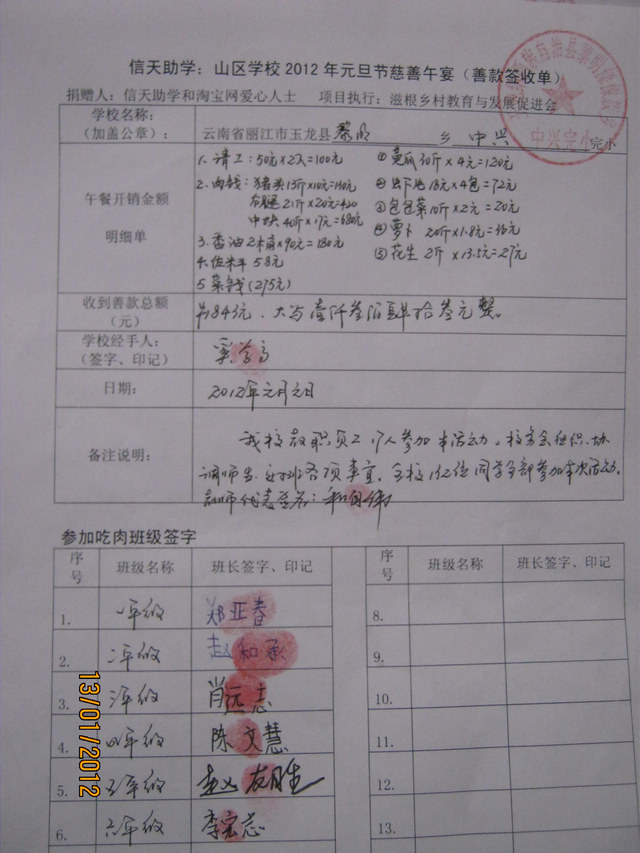 信天助学：山区学校2012年元旦节慈善午宴（善款签收单）
捐赠人：信天助学和淘宝网爱心人士 项目执行：滋根乡村教育与发展促进会
学校名称：
（加盖公章）： 云南省丽江市玉龙县黎明 乡 中兴 完小
中兴完小
午餐开销金额
明细单
1. 请工：50元×2人=100元
2. 肉钱：猪头15斤×10元=150元
21斤×20元=420
40斤×17元=680元
3. 香油2桶×90元=180元
4. 58元
5 菜钱(275元)
① 黄瓜30斤×4元=120元
② 18元×4包=72元
③ 包包菜10斤×2元=20元
④ 萝卜 20斤×1.8元=36元
⑤ 花生 2斤×13.5元=27元
收到善款总额
（元）
学校经手人：
（签字、印记）
日期： 2012年元月元日
备注说明：
我校教职员工 人参加本活动。校委会组织、协
调师生，安排各项事宜。全校 位同学全部参加本次活动。
教师代表签名：和
参加吃肉班级签字
序号 班级名称 班长签字、印记 序号 班级名称 班长签字、印记
1. 一年级 郑亚春 8.
2. 二年级 赵和承 9.
3. 三年级 肖远志 10.
4. 四年级 陈文慧 11.
5. 五年级 赵友胜 12.
6. 六年级 李宏芯 13.
13/01/2012